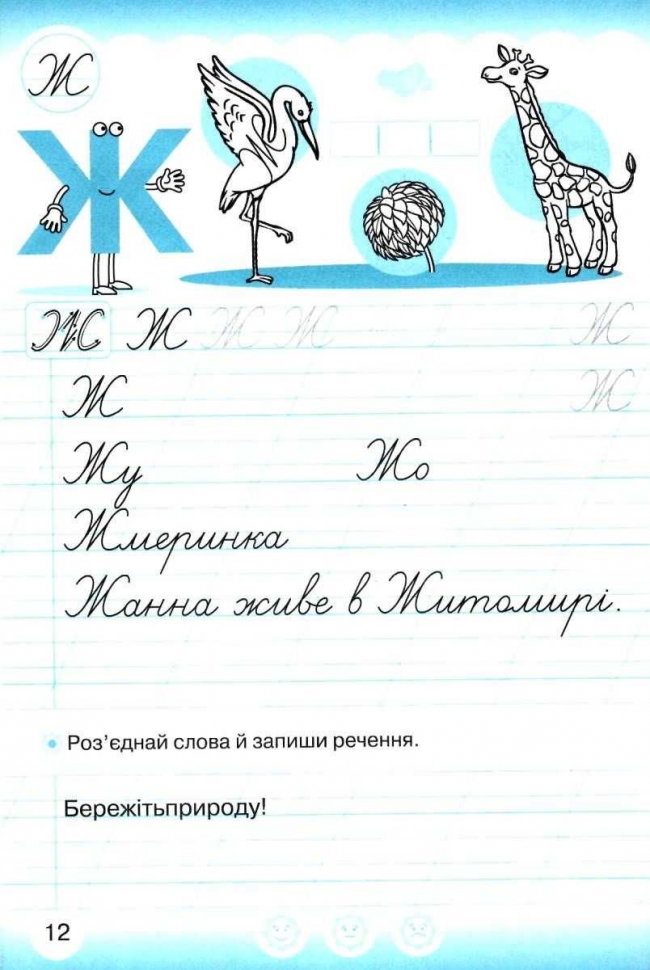 Ж
Ж
Ж Ж Ж Ж Ж
Ж Ж
Жу Жо
Жмеринка
Жанна живе в Житомирі.
Роз’єднай слова й запиши речення.
Бережітьприроду!
12